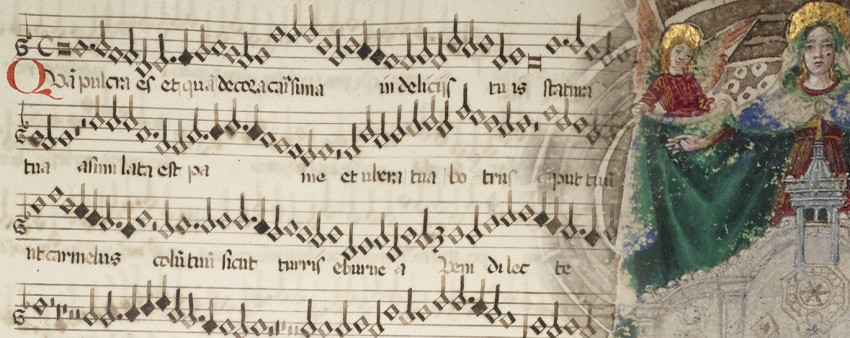 Quã pulcra es et quã decora carissima in deliciis tu is statura
tua assimilata est pa me et ubera tua bo trus caput tuũ
ut carmelus collũ tuũ sicut turris eburne a Veni di lec te